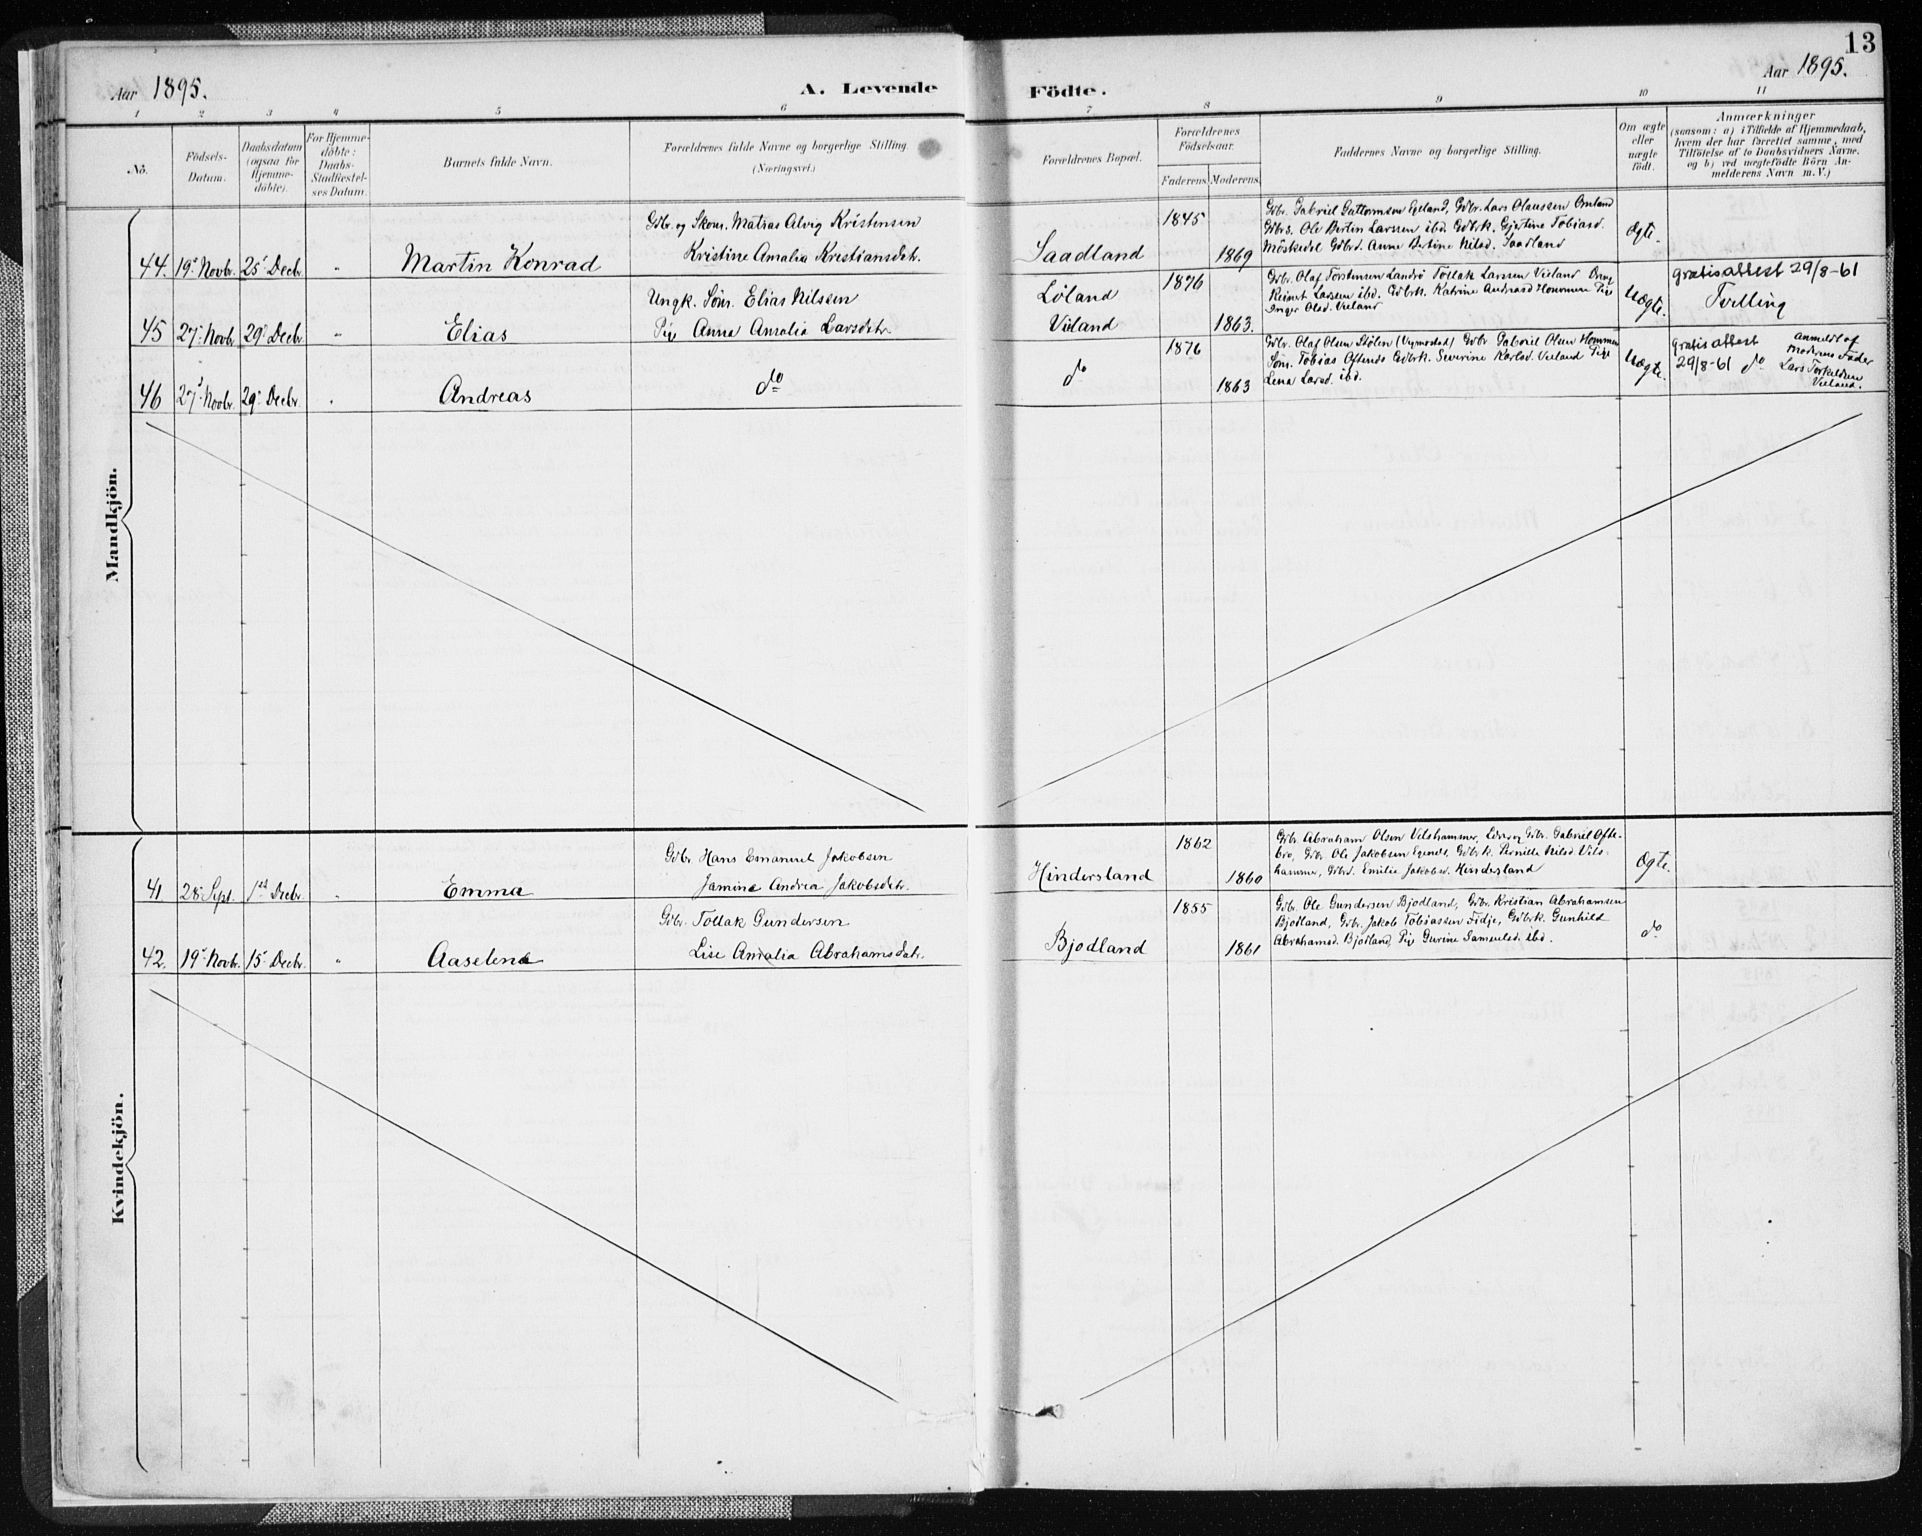 13
Aar 1895.
A. Levende
Födte.
Aar 1895.
1 2 3 4 5 6 7 8 9 10 11
No.
Födsels-
Datum.
Daabsdatum
(ogsaa for
Hjemme-
døbte).
For Hjemme-
døbte:
Daabs-
Stadfæstel-
ses Datum.
Barnets fulde Navn.
Forældrenes fulde Navne og borgerlige Stilling
(Næringsvei.)
Forældrenes Bopæl.
Forældrenes
Födselsaar.
Faderens. Moderens.
Faddernes Navne og borgerlige Stilling.
Om ægte
eller
uægte
födt.
Anmærkninger
(saasom: a) i Tilfælde af Hjemmedaab,
hvem der har forrettet samme, med
Tilføielse af to Daabsvidners Navne.
og b) ved uægtefödte Börn An-
melderens Navn m. V.)
Mandkjön.
44. 19de Novbr. 25de Decbr. " Martin Konrad
Gdbr. og Skom. Matias Alvig Kristensen
Kristine Amalia Kristiansdtr.
Saadland
1845
1869
Gdbr. Gabriel Guttormsen Egeland, Gdbr. Lars Olaussen Omland
Gdbrs. Ole Bertin Larsen ibd. Gdbrk. Gjertine Tobiasd.
Möskedal Gdbrd. Anne Bertine Nilsd. Saadland
Ægte.
45 27de Novbr. 29de Decbr. " Elias
Ungk. Töm. Elias Nilssen
Pige Anna Amalia Larsdtr.
Löland
Vieland
1876
1863.
Gdbr. Olaf Torstensen Landrö Tollak Larssen Vieland Dreng
Reinert Larssen ibd. Gdbrk. Katrine Andreasd Hommen Pige
Inger Olsd. Vieland
Uægte.
Gratisattest 29/8-61
Tvilling
46 27de Novbr. 29de Decbr. " Andreas
do
do
1876
1863
Gdbr. Olaf Olsen Stölen (Vigmostad) Gdbr Gabriel Olsen Hommen
Töm. Tobias Oftends Gdbrk. Severine Karlsd. Vieland Pige
Lena Larsd. ibd.
Uægte.
Gratisattest
29/8-61 do
Anmeldt af
Moderens Fader
Lars Torkeldsen
Vieland.
Kvindekjön.
41 28de Sept. 1ste Decbr. " Emma
Gdbr. Hans Emanuel Jakobsen
Jamine Andrea Jakobsdtr.
Hindersland
1862
1860
Gdbr. Abraham Olsen Vilshammer, Lærer og Gdbr. Gabriel Ofte-
bro, Gdbr. Ole Jakobsen Egenes, Gdbrk. Pernille Nilsd. Vils-
hammer, Gdbrd. Emilie Jakobsd. Hindersland
Ægte.
42. 19de Novbr. 15de Decbr. " Aaselene
Gdbr. Tollak Gundersen
Lise Amalia Abrahamsdtr.
Bjodland
1855
1861
Gdbr. Ole Gundersen Bjodland, Gdbr. Kristian Abrahamsen
Bjodland, Gdbr. Jakob Tobiassen Fidje, Gdbrk. Gunhild
Abrahamsd. Bjodland, Pige Gurine Samuelsd. ibd.
do